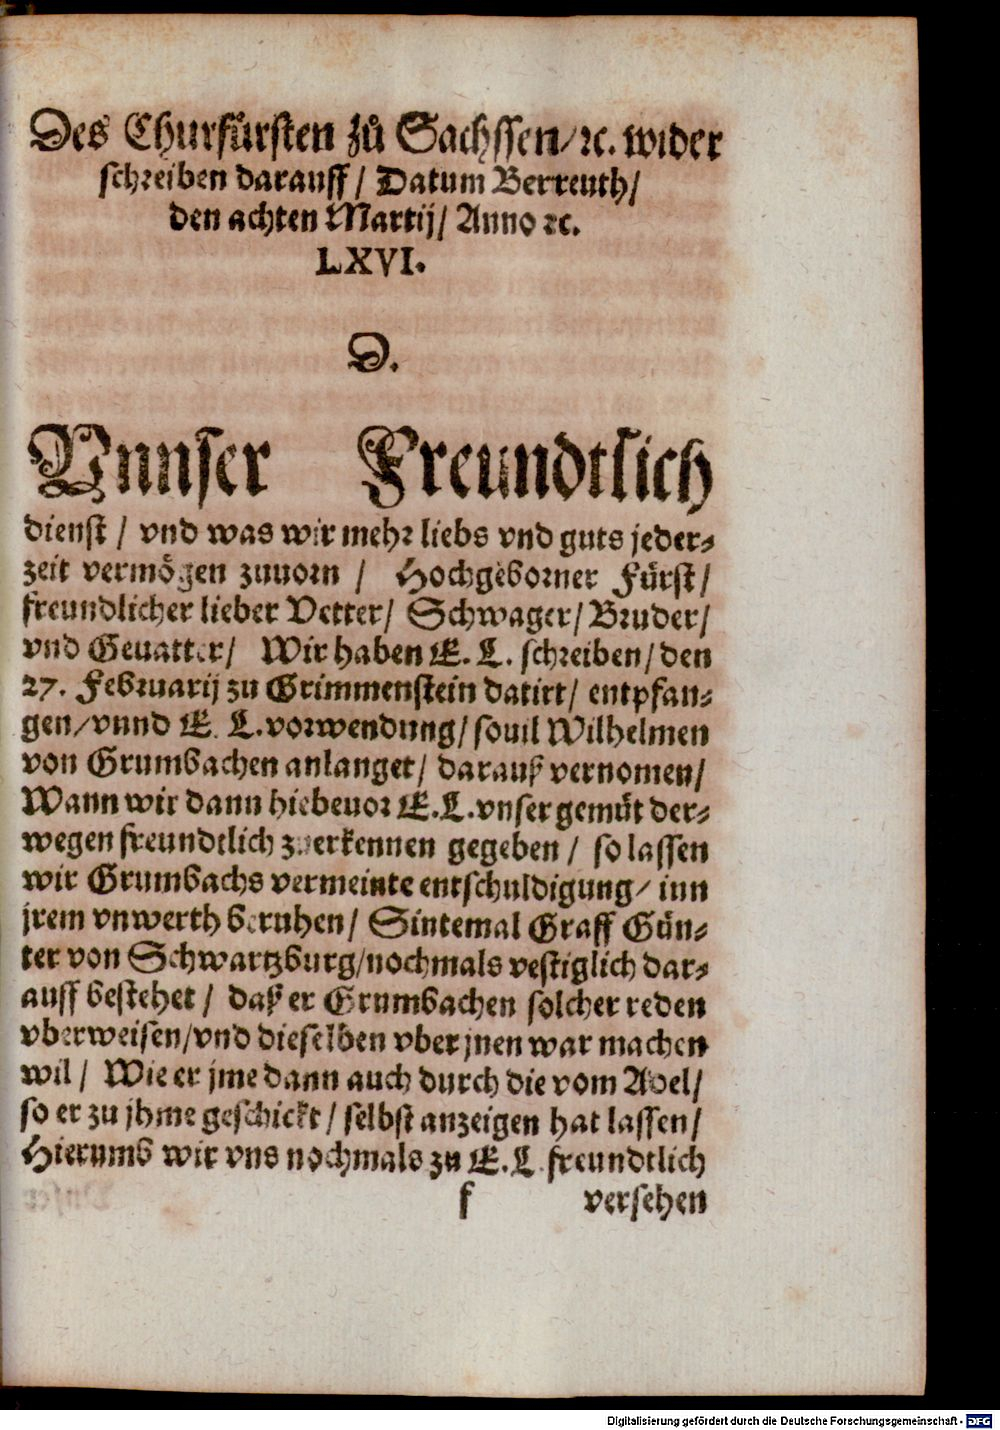 Des Churfürsten zů Sachssen/ ꝛc. wider
schreiben darauff / Datum Berreuth/
den achten Martij/ Anno ꝛc.
LXVI.
D.
Vnnser Freundtlich
dienst / vnd was wir mehr liebs vnd guts jeder-
zeit vermögen zuuorn / Hochgeborner Fürst/
freundlicher lieber Vetter/ Schwager/ Bruder/
vnd Geuatter/ Wir haben E. L. schreiben/ den
27. Februarij zu Grimmenstein datirt/ entpfan-
gen/ vnnd E. L. vorwendung/ souil Wilhelmen
von Grumbachen anlanget/ darauß vernomen/
Wann wir dann hiebeuor E. L. vnser gemüt der-
wegen freundtlich zuerkennen gegeben / so lassen
wir Grumbachs vermeinte entschuldigung/ inn
jrem vnwerth beruhen/ Sintemal Graff Gün-
ter von Schwartzburg/ nochmals vestiglich dar-
auff bestehet / daß er Grumbachen solcher reden
vberweisen/ vnd dieselben vber jnen war machen
wil / Wie er jme dann auch durch die vom Adel/
so er zu jhme geschickt / selbst anzeigen hat lassen/
Hierumb wir vns nochmals zu E. L. freundtlich
f versehen
Digitalisierung gefördert durch die Deutsche Forschungsgemeinschaft - DFG